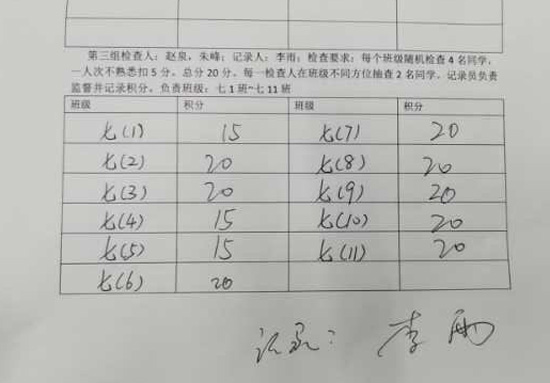 第三组检查人：赵泉，朱峰；记录人：李雨；检查要求：每个班级随机检查 4 名同学，
一人次不熟悉扣 5 分。总分 20 分。每一检查人在班级不同方位抽查 2 名同学。记录员负责
监督并记录积分。负责班级：七 1 班~七 11 班
班级 积分 班级 积分
七(1) 15 七(7) 20
七(2) 20 七(8) 20
七(3) 20 七(9) 20
七(4) 15 七(10) 20
七(5) 15 七(11) 20
七(6) 20
记录：李雨